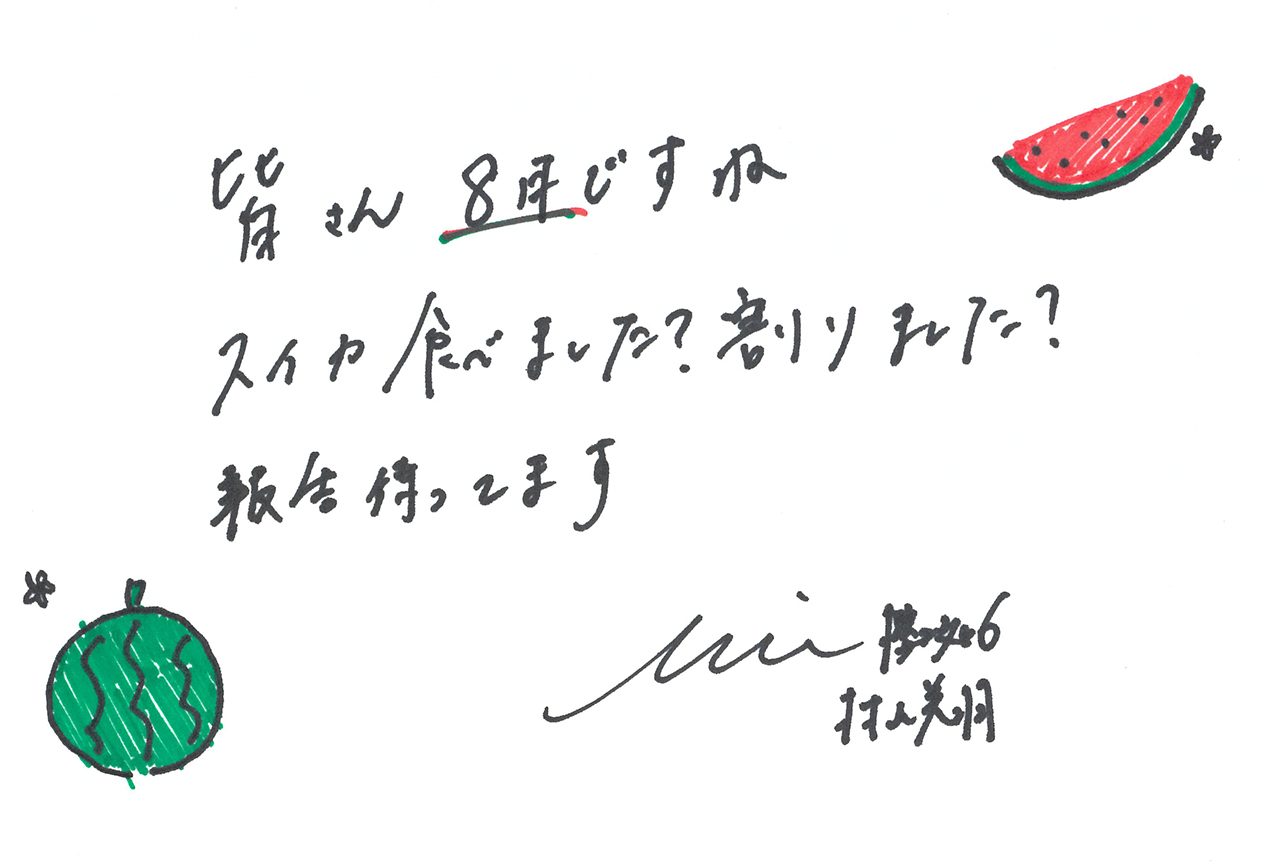 皆さん 8月ですね
スイカ食べました?割りました?
報告待ってます
miu
村上美羽